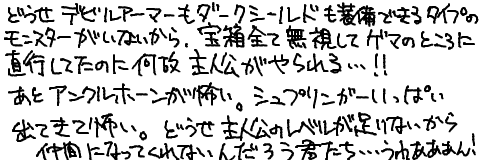 どうせ デビルアーマーもダークシールドも装備できるタイプの
モンスターがいないから、宝箱全て無視してゲマのところに
直行してたのに何故主人公がやられる…!!
あとアンクルホーンが怖い。シュプリンガーいっぱい
出てきて怖い。どうせ主人公のレベルが足りないから
仲間になってくれないんだろう君たち…うわあああん!